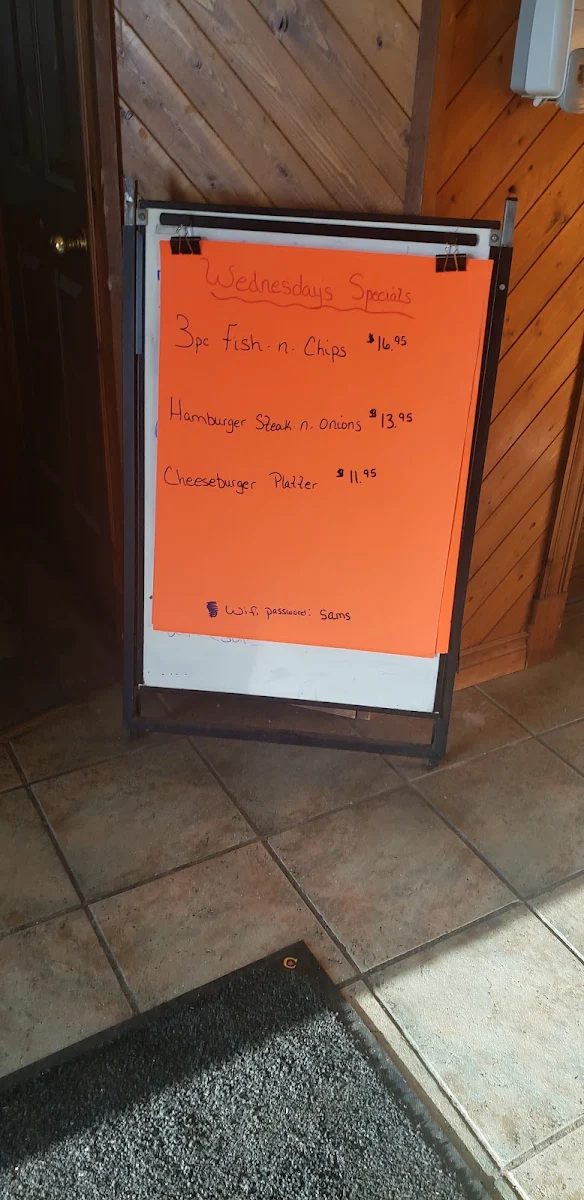 Wednesdays Specials
3pc Fish-n-Chips $16.95
Hamburger Steak-n-onions $13.95
Cheeseburger Platter $11.95
Wifi password: sams
C